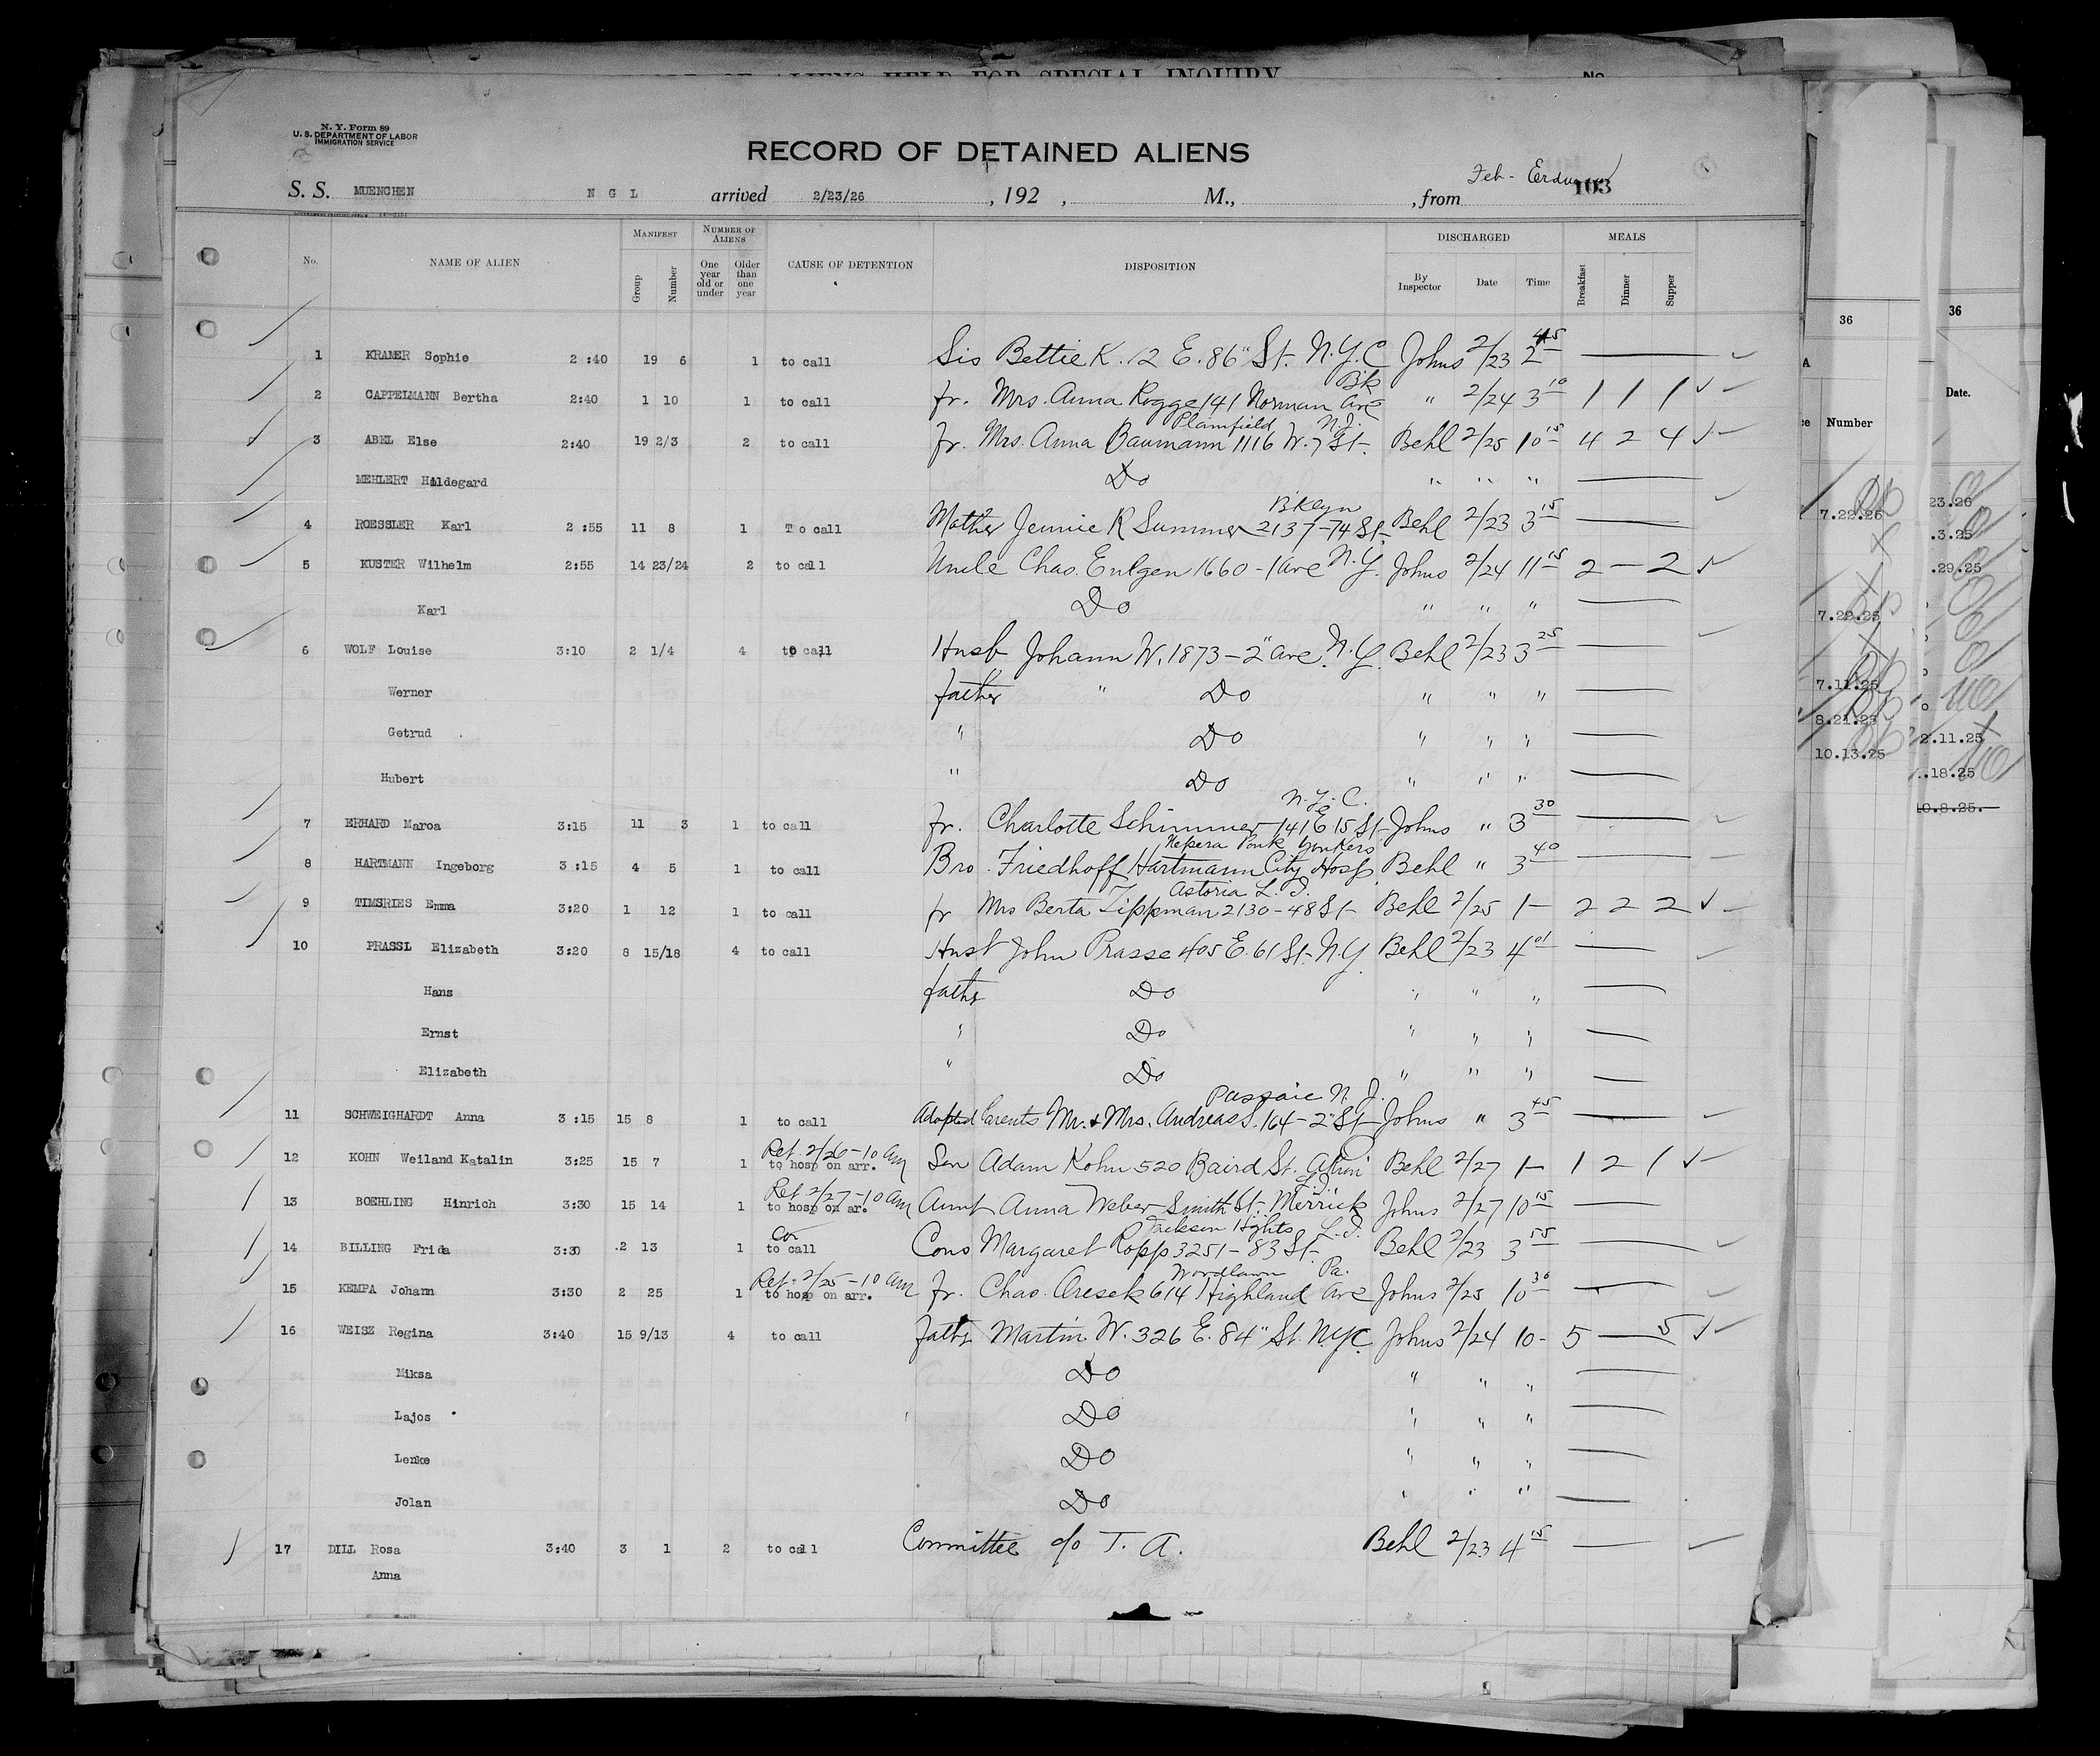 RECORD OF ALIENS HELD FOR SPECIAL INQUIRY No.
N. Y. Form 89
U. S. DEPARTMENT OF LABOR
IMMIGRATION SERVICE
RECORD OF DETAINED ALIENS
S. S. MUENCHEN N G L arrived 2/23/26 , 192 , M., , from 103
No. NAME OF ALIEN MANIFEST Group Number NUMBER OF ALIENS One year old or under Older than one year CAUSE OF DETENTION DISPOSITION DISCHARGED By Inspector Date Time MEALS Breakfast Dinner Supper
1 KRAMER Sophie 2:40 19 6 1 to call Sis Bettie K. 12 E. 86" St. N.Y.C Johns 2/23 2 45
2 CAPPELMANN Bertha 2:40 1 10 1 to call fr. Mrs. Anna Rogge 141 Norman Ave Bk " 2/24 3 10 1 1 1
3 ABEL Else 2:40 19 2/3 2 to call fr. Mrs. Anna Baumann 1116 W. 7 St. Plainfield N.J. Behl 2/25 10 15 4 2 4
MEHLERT Hildegard Do " " "
4 ROESSLER Karl 2:55 11 8 1 To call Mother Jennie R Summer 2137-74 St. B'klyn Behl 2/23 3 15
5 KUSTER Wilhelm 2:55 14 23/24 2 to call Uncle Chas. Eulgen 1660-1 Ave N.Y. Johns 2/24 11 15 2 — 2
Karl Do " " "
6 WOLF Louise 3:10 2 1/4 4 to call Husb Johann W. 1873-2" Ave. N.Y. Behl 2/23 3 25
Werner father " Do " " "
Getrud " Do " " "
Hubert " Do " " "
7 ERHARD Maroa 3:15 11 3 1 to call fr. Charlotte Schimmer 141 E 15 St N.Y.C. Johns " 3 30
8 HARTMANN Ingeborg 3:15 4 5 1 to call Bro. Friedhoff Hartmann City Hosp. Nepera Park Yonkers Behl " 3 40
9 TIMSRIES Emma 3:20 1 12 1 to call fr Mrs Berta Lippman 2130-48 St Astoria L.I. Behl 2/25 1— 2 2 2
10 PRASSL Elizabeth 3:20 8 15/18 4 to call Husb John Prasse 405 E. 61 St. N.Y Behl 2/23 4 01
Hans father Do " " "
Ernst " Do " " "
Elizabeth " Do " " "
11 SCHWEIGHARDT Anna 3:15 15 8 1 to call Adopted Parents Mr. & Mrs. Andreas S. 164-2" St Passaic N.J. Johns " 3 45
12 KOHN Weiland Katalin 3:25 15 7 1 Ret. 2/26-10 AM to hosp on arr. Son Adam Kohn 520 Baird St. Akron Behl 2/27 1— 1 2 1
13 BOEHLING Hinrich 3:30 15 14 1 Ret 2/27-10 AM to hosp on ar. Aunt Anna Weber Smith St. Merrick Johns 2/27 10 15
14 BILLING Frida 3:30 2 13 1 to call Cous Margaret Ropp 3251-83 St. Jackson Hights L.I. Behl 2/23 3 55
15 KEMPA Johann 3:30 2 25 1 Ret. 2/25-10 AM to hosp on arr. fr. Chas. Oresek 614 Highland Ave Woodlawn Pa. Johns 2/25 10 30
16 WEISZ Regina 3:40 15 9/13 4 to call father Martin W. 326 E. 84" St. N.Y.C. Johns 2/24 10- 5 — 5
Miksa Do " " "
Lajos Do " " "
Lenke Do " " "
Jolan Do " " "
17 DILL Rosa 3:40 3 1 2 to call Committee c/o T. A. Behl 2/23 4 15
Anna
36
Number
7.22.26
7.22.25
7.11.25
8.21.25
10.13.25
36
Date.
23.26
.3.25
.29.25
2.11.25
.18.25
10.8.25.